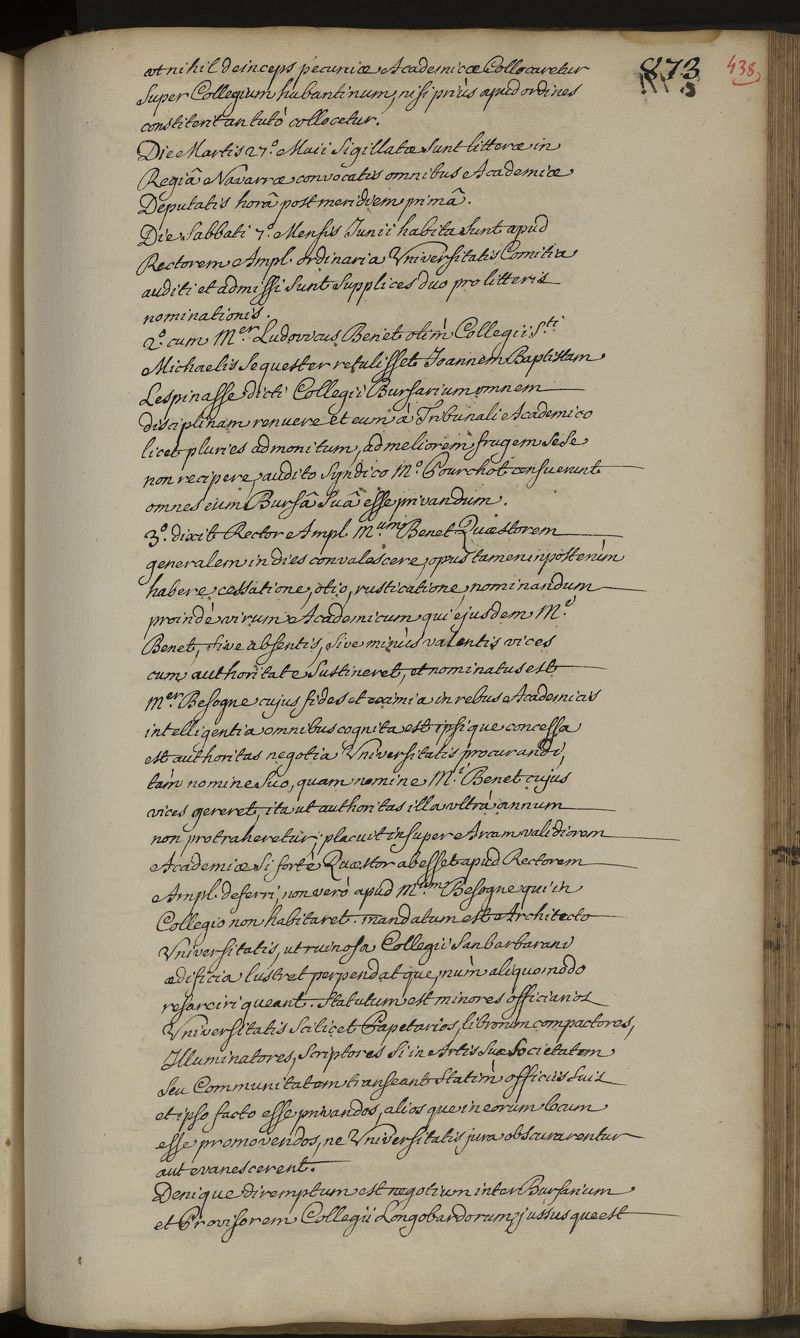 873 438
ut nihil deinceps pecuniæ Academicæ Collocaretur
Super Collegium hubantinum, nisi priùs apud ordines
constiterit an tutò collocetur.
Die Martis 27.º Maii Sigillatæ Sunt litteræ in
Regiâ Navarræ convocatis omnibus Academiæ
Deputatis horâ post meridiem primâ.
Die Sabbati 7.º Mensis Junii habita Sunt apud
Rectorem Ampl. ordinaria Universitatis Comitia
auditi et admissi Sunt Supplices duo pro litteris
nominationis.
2.º cum M.er Ludovicus Benet olim Collegii S.ti
Michaelis Sequester retulisset Joannem Baptistam
Lespinasse dicti Collegii Bursarium omnem
disciplinam renuere et eum à Tribunali Academico
licet pluries admonitum, ad meliorem frugem Sese
non recipere, audito Syndico M.º Pourchot censuerunt
omnes eum Bursâ Suâ esse privandum.
3.º dixit Rector Ampl. M.um Benet Quæstorem
generalem in dies convalescere, opus tamen in posterum
habere cessatione, otio, rusticatione, nominandum
proindè virum Academicum qui ejusdem M.i
Benet, Sive absentis, Sive minùs valentis vices
cum authoritate Sustineret, et nominatus est
M.er Besogne cujus fides et eximia in rebus Academicis
intelligentia omnibus cognita est ipsique concessa
est authoritas negotia Universitatis procurandi,
tam nomine Suo, quam nomine M.i Benet cujus
vices gereret, ita ut authoritas illa ultrà annum
non protraheretur; placuit insuper Arcam validiorem
Academiæ Si fortè Quæstor abesset apud Rectorem
Ampl. deferri, non verò apud M.um Besogne qui in
Collegio non habitaret. mandatum est Architecto
Universitatis, ut ruinosa Collegii Sanbarbarani
ædificia lustret perpendatque, num aliquo modo
resarciri queant. Statutum est minores officiarios
Universitatis Scilicet Papetarios, librorum compactores,
Illuminatores, Scriptores Si in Artis Suæ Societatem
Seu Communitatem transeant Statim officiis Suis
et ipso facto esse privandos, aliosque in eorum locum
esse promovendos, ne Universitatis jura obscurarentur
aut evanescerent.
Denique diremptum est negotium inter Bursarium
et Provisorem Collegii Longobardorum, jussusque est